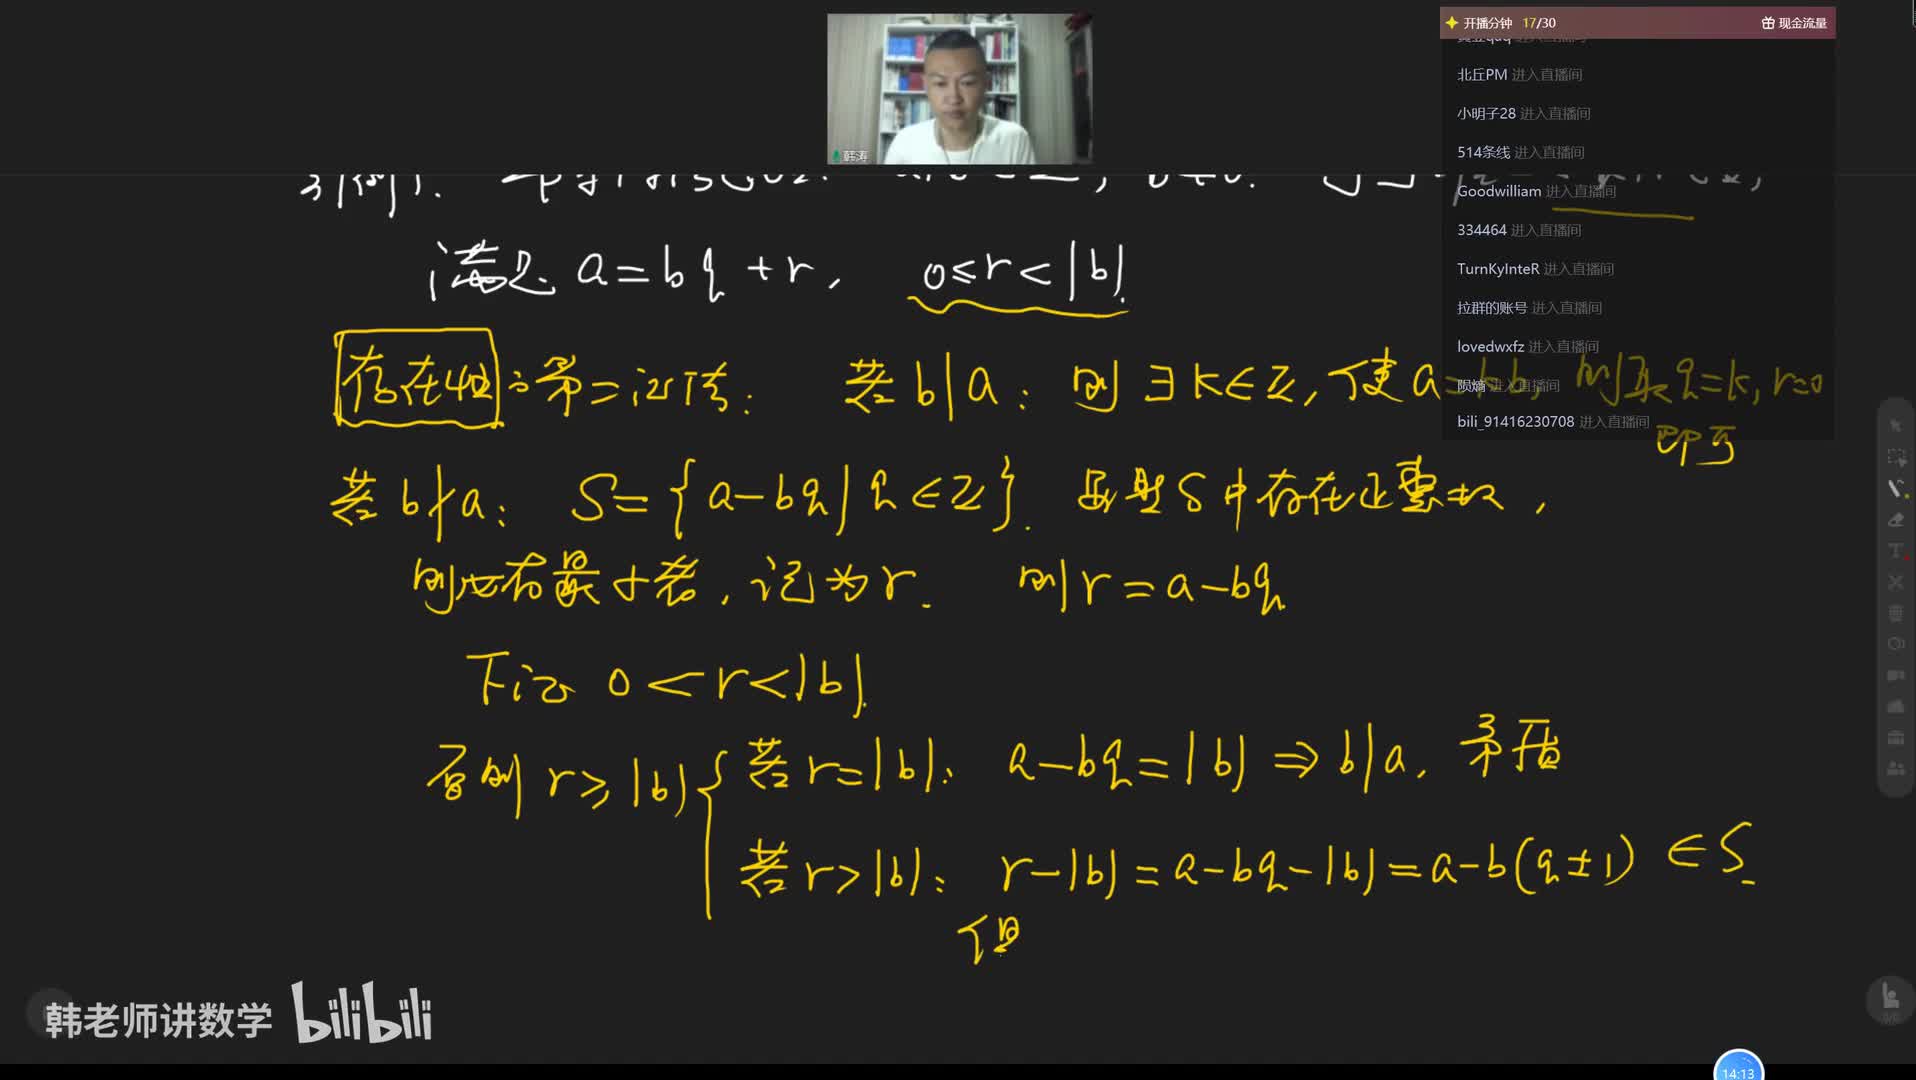 开播分钟 17/30 现金流量
北丘PM 进入直播间
小明子28 进入直播间
514条线 进入直播间
Goodwilliam 进入直播间
334464 进入直播间
TurnKyInteR 进入直播间
拉群的账号 进入直播间
lovedwxfz 进入直播间
陨熵 进入直播间
bili_91416230708 进入直播间
韩涛
满足 a=bq+r, 0≤r<|b|.
存在性之第二证法: 若b|a: 则∃k∈Z,使a=kb, 则取q=k, r=0
即可
若b∤a: S={a-bq|q∈Z}. 显然S中存在正整数,
则必有最小者,记为r. 则r=a-bq
下证 0<r<|b|.
否则 r≥|b|
若r=|b|: a-bq=|b|⇒b|a, 矛盾
若r>|b|: r-|b|=a-bq-|b|=a-b(q±1)∈S
但
韩老师讲数学 bilibili
14:13